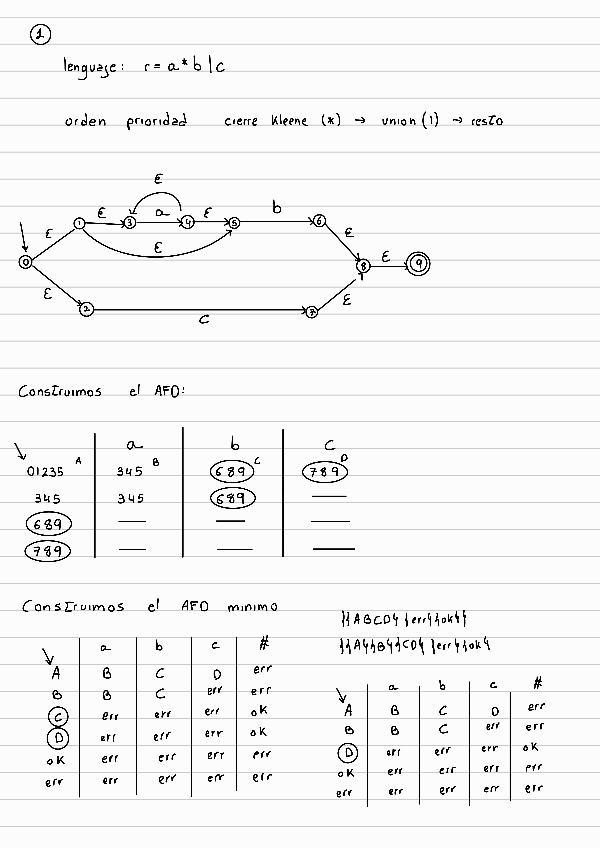 1
lenguaje: r = a* b | c
orden prioridad cierre Kleene (*) → union (|) → resto
ε
ε a ε b
1 3 4 5 6
ε ε ε
0 8 ε 9
ε ε
2 7
c
Construimos el AFD:
a b c
01235 A 345 B 689 C 789 D
345 345 689 —
689 — — —
789 — — —
Construimos el AFD minimo
{{ABCD} {err}{ok}}
{{A}{B}{CD} {err}{ok}}
a b c #
A B C D err
B B C err err
C err err err oK
D err err err oK
oK err err err err
err err err err err
a b c #
A B C D err
B B C err err
D err err err oK
oK err err err err
err err err err err